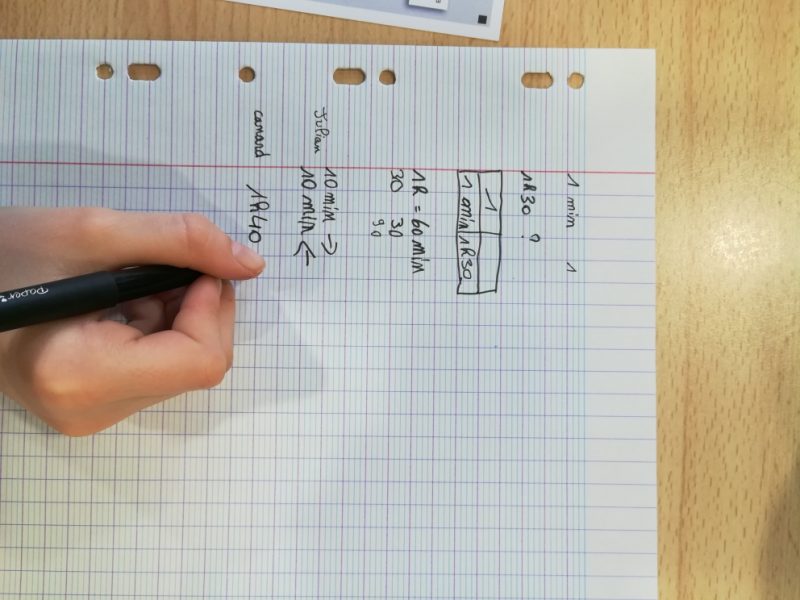 1 min 1
1h30 ?
1
1 min 1h30
1h = 60 min
30 30
90
Julian 10 min →
10 min ←
canard 1h40
Paper